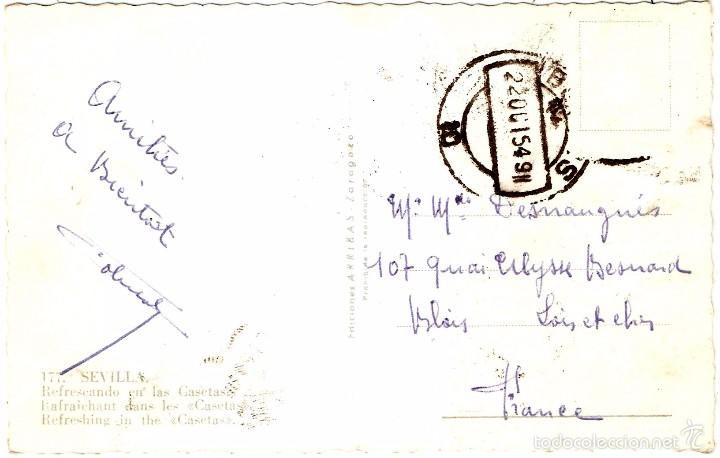 Amitiés
a Bientot
177. SEVILLA.
Refrescando en las Casetas.
Rafraichant dans les «Casetas
Refreshing in the «Casetas».
Ediciones ARRIBAS Zaragoza
22OCT549
Mr Mde Desnaugués
107 Quai Ulysse Besnard
Blois Loir et cher
France
todocoleccion.net